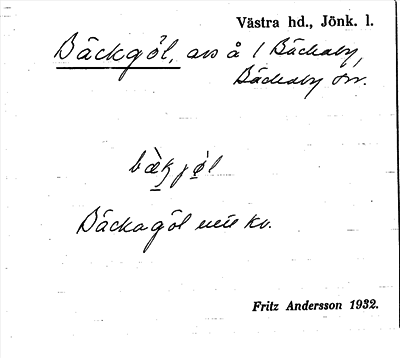 Västra hd., Jönk. l.
Bäckgöl, avs å 1 Bäckaby,
Bäckaby sn.
bækjøl
Bäckagöl utt kv.
Fritz Andersson 1932.